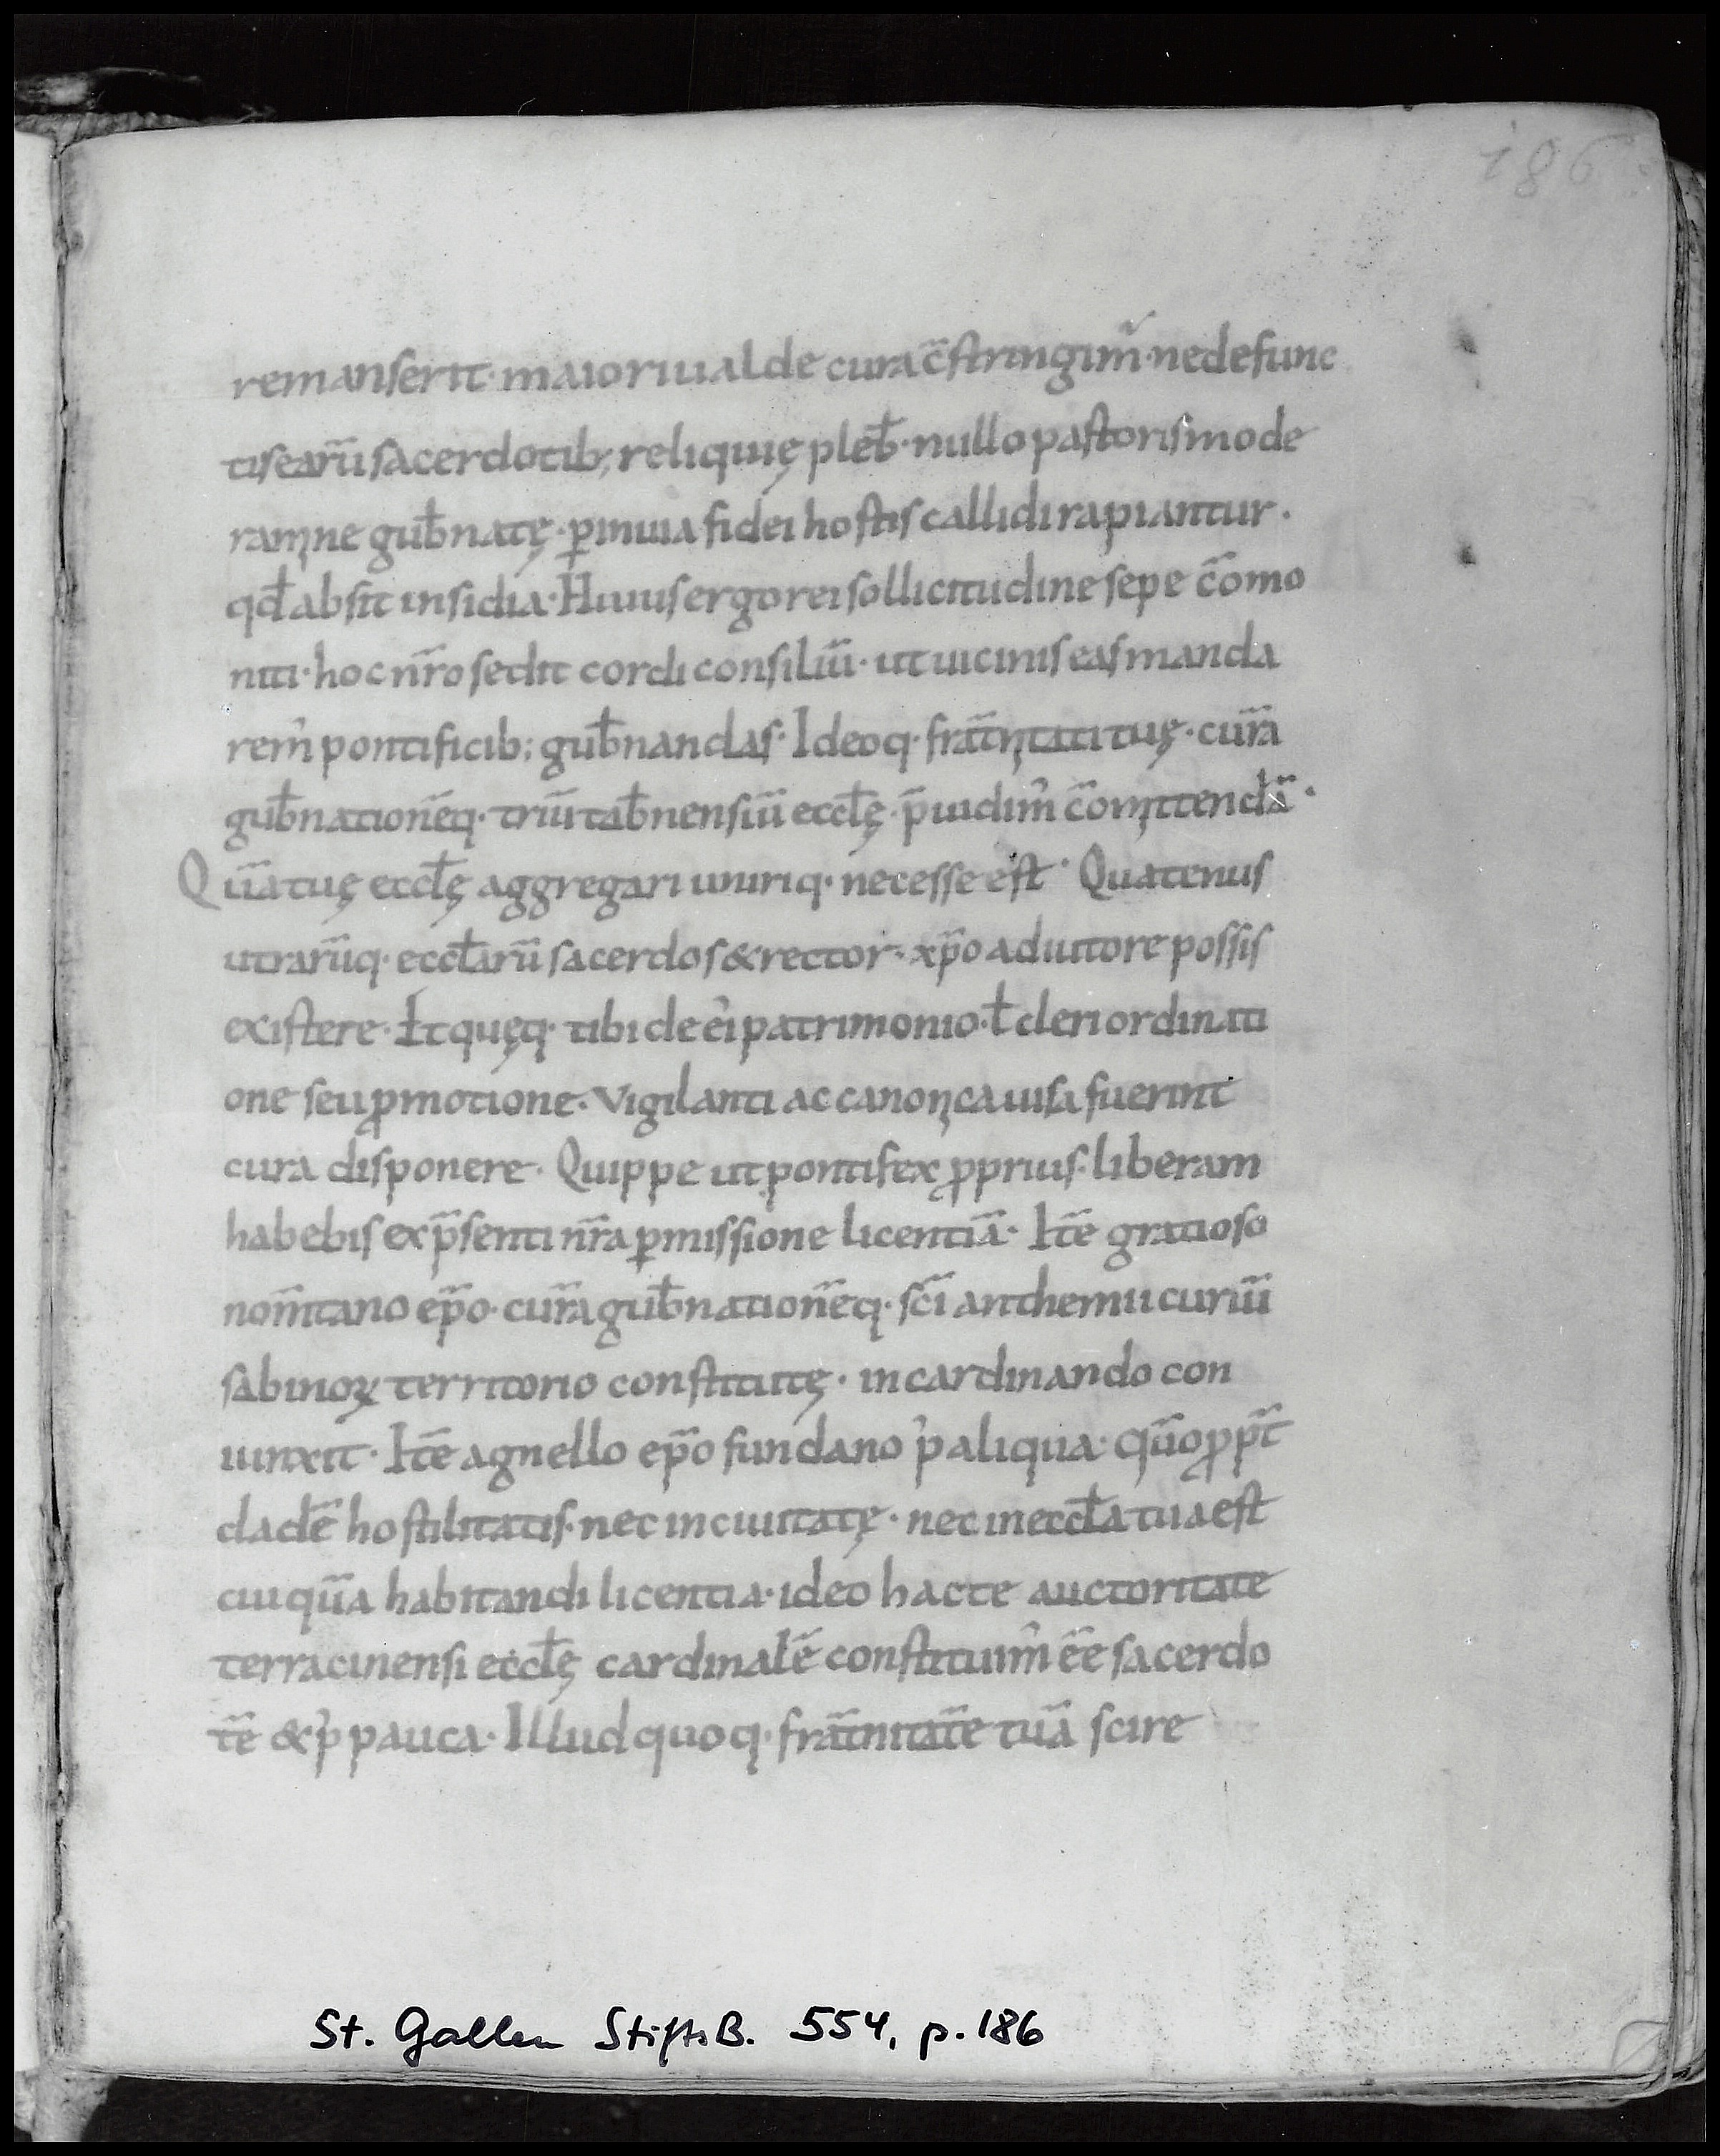 186
remanserit· maiori ualde cura c̄stringim̄· ne defunc
tis earū sacerdotib; reliquię pleb̄· nullo pastoris mode
ramine gub̄natę· ꝑ inuia fidei hostis callidi rapiantur·
qđ absit insidia· Huius ergo rei sollicitudine sepe c̄omo
niti· hoc nr̄o sedit cordi consiliū· ut uicinis eas manda
rem̄ pontificib; gub̄nandas· Ideoq· frat̄nitati tuę· curā
gub̄nationēq· triū tab̄nensiū eccl̄ę· p̄uidim̄ c̄omittendā·
Quā tuę eccl̄ę aggregari uniriq· necesse est· Quatenus
utrarūq· eccl̄arū sacerdos & rector· xp̄o adiutore possis
existere· Et quęq· tibi de ei᾽ patrimonio· ł cleri ordinati
one seu ꝓmotione· Vigilanti ac canonica uisa fuerint
cura disponere· Quippe ut pontifex ꝓprius· liberam
habebis ex p̄senti nr̄a ꝑmissione licentiā· Itē gratioso
nom̄tano ep̄o· curā gub̄nationēq· sc̄i anthemii curiū
sabinoꝝ territorio constitutę· incardinando con
iunxit· Itē agnello ep̄o fundano p᾽ aliqua· qūo ꝓpt̄
cladē hostilitatis· nec in ciuitatę· nec in eccl̄a tua est
cuiquā habitandi licentia· ideo hac te auctoritate
terracinensi eccl̄ę cardinalē constituim̄ ēe sacerdo
tē & p᾽ pauca· Illud quoq· frat̄nitatē tuā scire
St. Gallen StiftsB. 554, p. 186